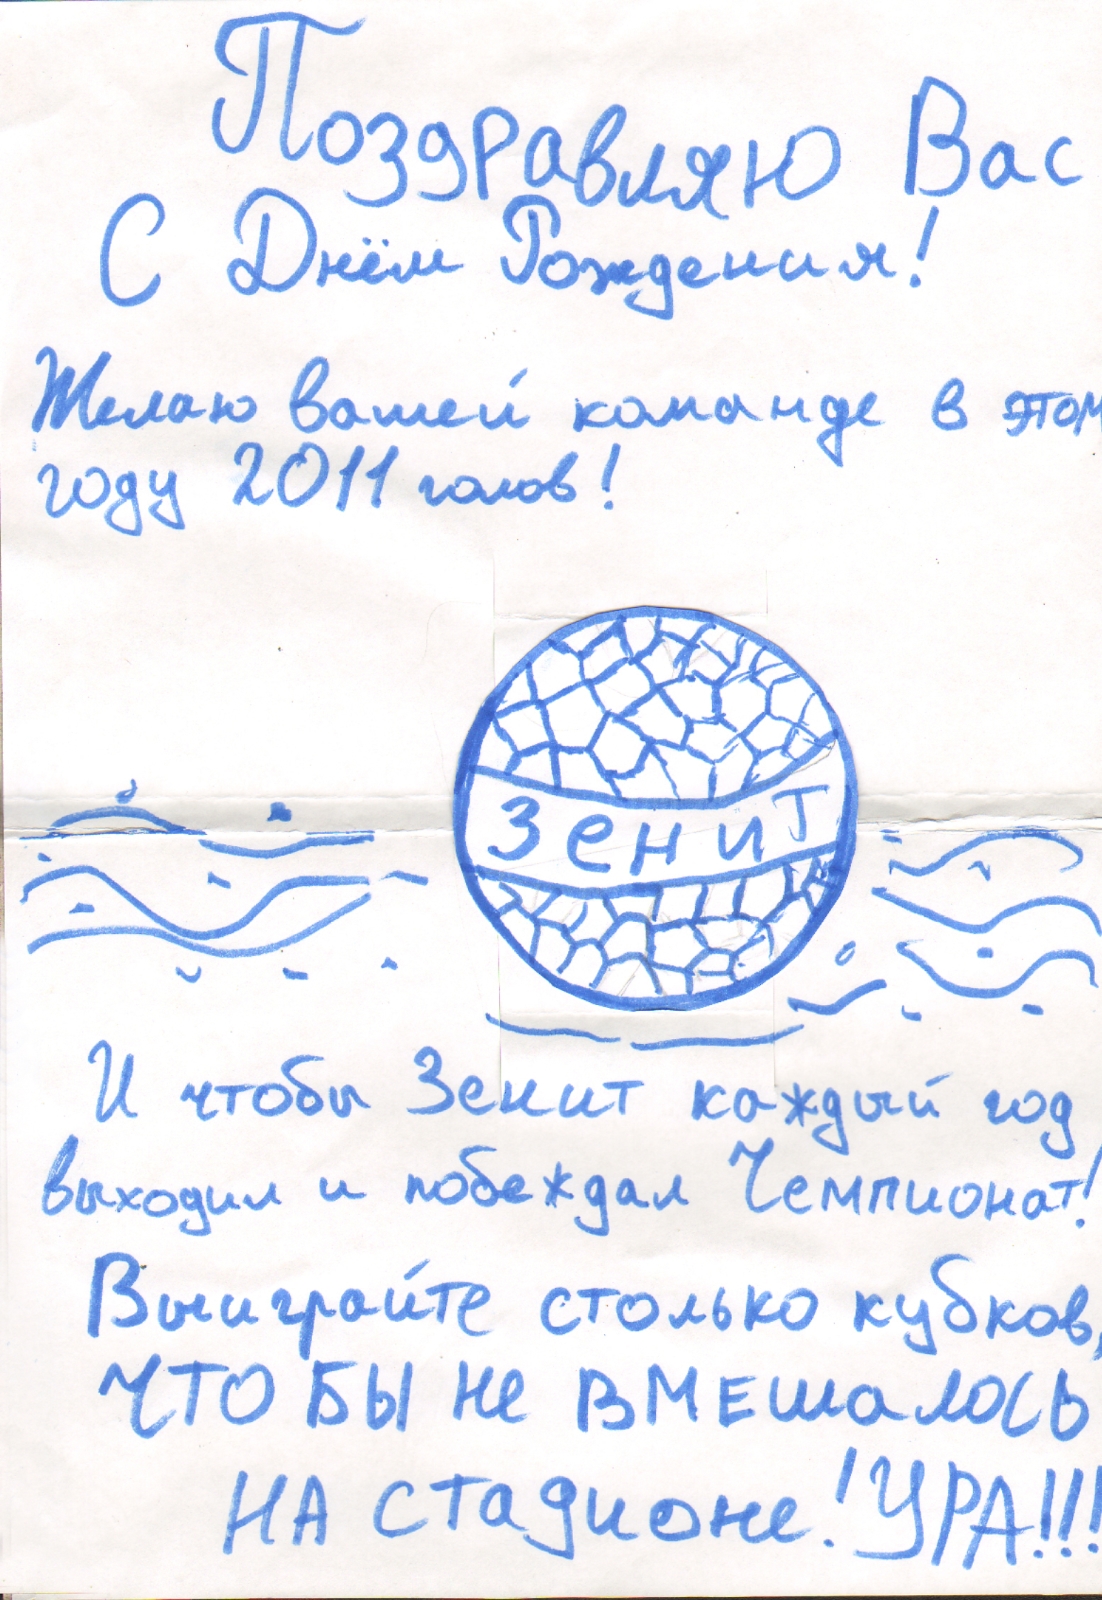 Поздравляю Вас
С Днём Рождения!
Желаю вашей команде в этом
году 2011 голов!
Зенит
И чтобы Зенит каждый год
выходил и побеждал Чемпионат!
Выиграйте столько кубков,
ЧТО БЫ не вмешалось
НА стадионе! УРА!!!